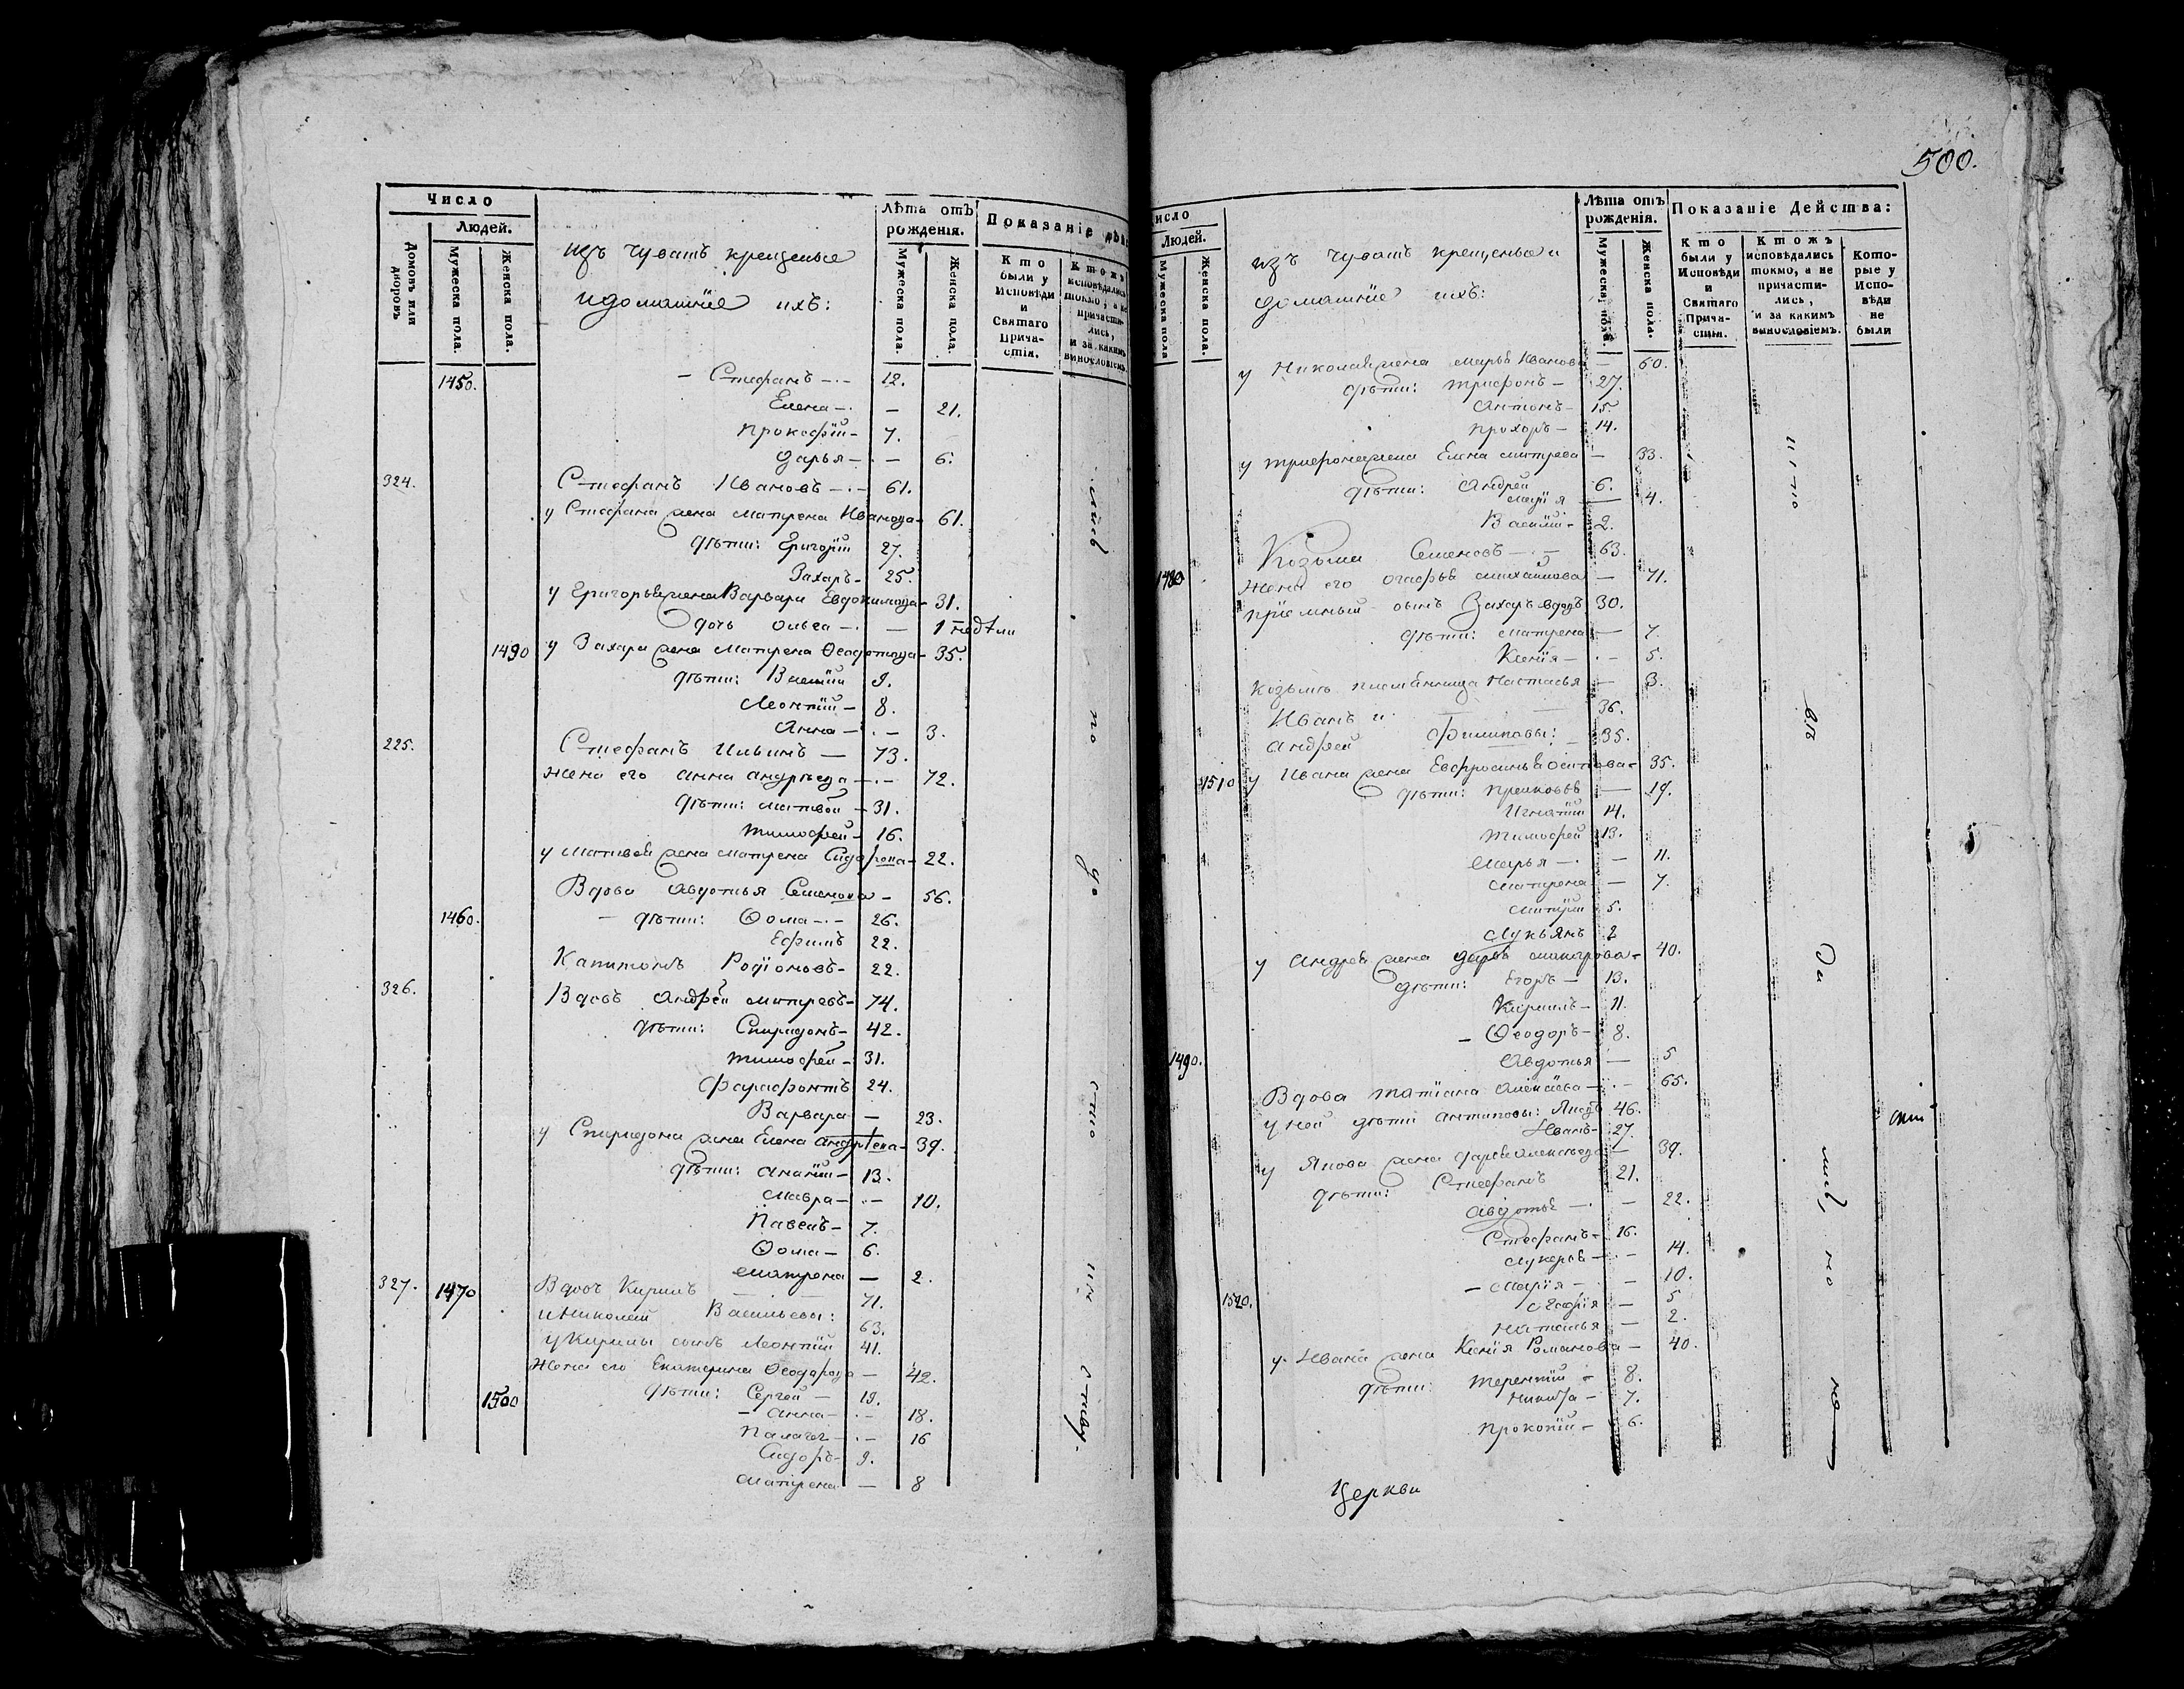 500.
Число
Людей.
Домовъ или дворовъ
Мужеска пола.
Женска пола.
изъ чувашъ крещеные
и домашнїе ихъ:
Лѣта отъ рожденія.
Мужеска пола.
Женска пола.
Показаніе
Кто были у Исповѣди и Святаго Прича-стія.
Ктожъ исповѣдались токмо, а не причасти-лись, и за какимъ винословіемъ.
1450. – Стефанъ – 12.
Елена – – 21.
Прокофїй – 7.
Дарья – – 6.
324. Стефанъ Ивановъ – 61.
у Стефана жена Матрена Иванова – 61.
дѣти: Григорїй 27.
Захаръ – 25.
у Григорья жена Варвара Евдокимова – 31.
дочь Ольга – – 1 недѣли
1490 у Захара жена Матрена Ѳеодотова – 35.
дѣти: Василїй 9.
Леонтїй – 8.
Анна – – 3.
225. Стефанъ Ильинъ – 73.
Жена его Анна Андрѣева – – 72.
дѣти: Матвей – 31.
Тимофей – 16.
у Матвея жена Матрена Сидорова – 22.
Вдова Авдотья Семенова – 56.
1460. – дѣти: Ѳома – 26.
Ефимъ 22.
Капитонъ Родїоновъ – 22.
326. Вдовъ Андрей Митревъ – 74.
дѣти: Спиридонъ – 42.
Тимофей – 31.
Фарафонтъ 24.
Варвара – 23.
у Спиридона жена Елена Андрѣева – 39.
дѣти: Ананїй – 13.
Мавра – – 10.
Павелъ – 7.
Ѳома – 6.
Матрена – 2.
327. 1470 Вдовъ Кирилъ – – 71.
и Николай Васильевы: 63.
у Кирилы сынъ Леонтїй 41.
Жена его Екатерина Ѳеодорова – 42.
1500 дѣти: Сергей – 19.
– Анна – – 18.
Палагея – – 16
Сидоръ – 9.
Матрена – 8
число
Людей.
Мужеска пола
Женска пола.
изъ чувашъ крещеные и
домашнїе ихъ:
Лѣта отъ рожденія.
Мужеска пола
Женска пола.
Показаніе Действа:
Кто были у Исповѣди и Святаго Прича-стія.
Ктожъ исповѣдались токмо, а не причасти-лись, и за какимъ винословіемъ.
Кото-рые у Испо-вѣди не были
у Николая жена Марья Иванова – 60.
дѣти: Трифонъ – 27.
Антонъ – 15.
Прохоръ – 14.
у Трифона жена Елена Митрева – 33.
дѣти: Андрей 6.
Марїя – 4.
Василїй – 2.
Козьма Семеновъ – 63.
1480 Жена его Огафья Михайлова – 71.
прїемный сынъ Захаръ вдовъ 30.
дѣти: Матрена – 7.
Ксенїя – – 5.
Козьмѣ племянница Настасья – 3.
Иванъ и – – 36.
Андрей Филиповы: – 35.
1510 у Ивана жена Евфросинья Осипова – 35.
дѣти: Прасковья – 19.
Игнатїй 14.
Тимофей 13.
Марья – – 11.
Матрена – 7.
Митрїй 5.
Лукьянъ 2
у Андрея жена Дарья Макарова – 40.
дѣти: Егоръ – 13.
Кирилъ – 11.
– Ѳеодоръ – 8.
1490. Авдотья – 5
Вдова Татїана Алексїева – – 65.
у ней дѣти Антиповы: Яковъ 46.
Иванъ – 27.
у Якова жена Дарья Алексѣева – 39.
дѣти: Стефанъ 21.
Авдотья – – 22.
Стефанъ – 16.
Лукерья – – 14.
– Марїя – – 10.
1520. Софїя – 5
Наталья – 2.
у Ивана жена Ксенїя Романова – 40.
дѣти: Терентїй – 8.
Никита – 7.
Прокопїй – 6.
но
не
Церкви